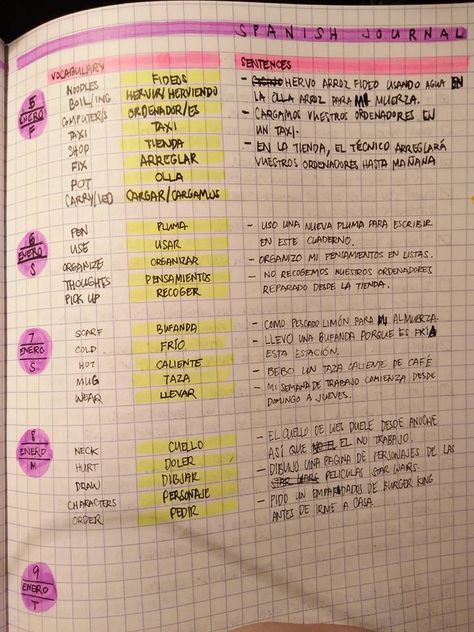 SPANISH JOURNAL
VOCABULARY
SENTENCES
5
ENERO
F
NOODLES FIDEOS
BOIL/ING HERVIR/HERVIENDO
COMPUTER/S ORDENADOR/ES
TAXI TAXI
SHOP TIENDA
FIX ARREGLAR
POT OLLA
CARRY/IED CARGAR/CARGAMOS
- HERVO ARROZ FIDEO USANDO AGUA EN
LA OLLA ARROZ PARA MI MUERZA.
- CARGAMOS VUESTROS ORDENADORES EN
UN TAXI.
- EN LA TIENDA, EL TÉCNICO ARREGLARÁ
VUESTROS ORDENADORES HASTA MAÑANA
6
ENERO
S
PEN PLUMA
USE USAR
ORGANIZE ORGANIZAR
THOUGHTS PENSAMIENTOS
PICK UP RECOGER
- USO UNA NUEVA PLUMA PARA ESCRIBIR
EN ESTE CUADERNO.
- ORGANIZO MI PENSAMIENTOS EN LISTAS.
- NO RECOGEMOS NUESTROS ORDENADORES
REPARADO DESDE LA TIENDA.
7
ENERO
S
SCARF BUFANDA
COLD FRÍO
HOT CALIENTE
MUG TAZA
WEAR LLEVAR
- COMO PESCADO LIMÓN PARA MI ALMUERZA.
- LLEVO UNA BUFANDA PORQUE ES FRÍA
ESTA ESTACIÓN.
- BEBO UN TAZA CALIENTE DE CAFÉ
- MI SEMANA DE TRABAJO COMIENZA DESDE
DOMINGO A JUEVES.
8
ENERO
M
NECK CUELLO
HURT DOLER
DRAW DIBJAR
CHARACTERS PERSONAJE
ORDER PEDIR
- EL CUELLO DE WES DUELE DESDE ANOCHE
ASÍ QUE EL NO TRABAJO.
- DIBUJO UNA PAGINA DE PERSONAJES DE LAS
STAR WARS PELICULAS STAR WARS.
- PIDO UN EMPARDADOS DE BURGER KING
ANTES DE IRME A CASA.
9
ENERO
T